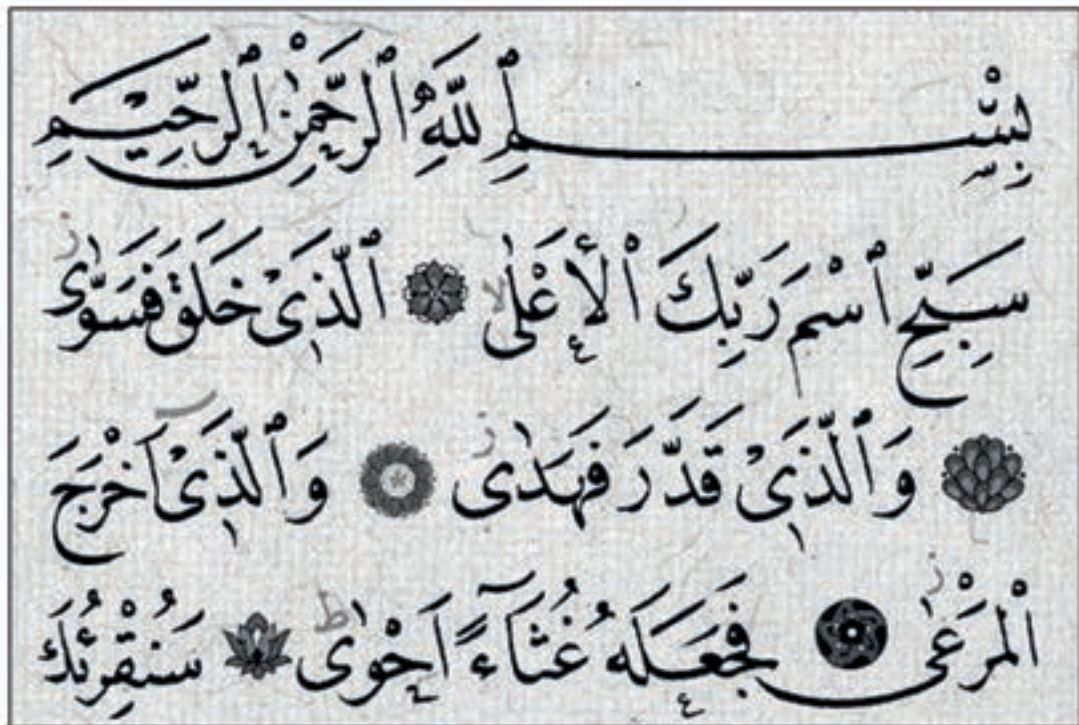 بِسْمِ ٱللَّهِ ٱلرَّحْمٰنِ ٱلرَّحِيمِ
سَبِّحِ ٱسْمَ رَبِّكَ ٱلْأَعْلٰى ۝ ٱلَّذِى خَلَقَ فَسَوّٰى
۝ وَٱلَّذِى قَدَّرَ فَهَدٰى ۝ وَٱلَّذِىٓ اَخْرَجَ
ٱلْمَرْعٰى ۝ فَجَعَلَهُ غُثَآءً اَحْوٰى ۝ سَنُقْرِئُكَ